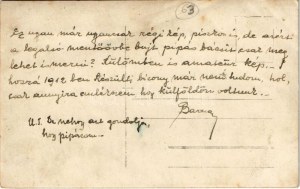 53
Ez ugyan már ugyancsak régi kép, piszkos is, de azért
a legalsó mentőövbe bujt pipás bácsit csak meg
lehet ismerni? Különben is amatőr kép...
hozzá 1912 ben készült bizony már nem tudom, hol,
csak annyira emlékszem hogy külföldön voltunk..
U.I. Ne hogy azt gondolja,
hogy pipázom.